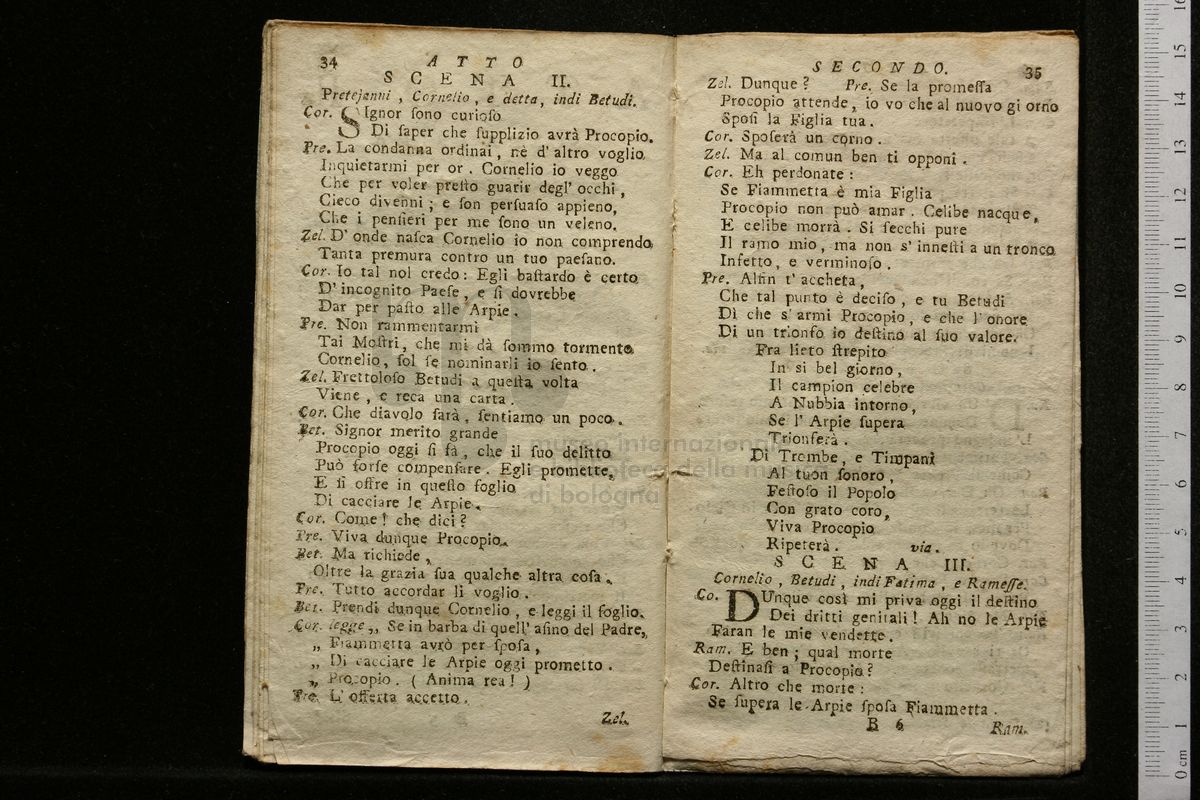 34 ATTO
SCENA II.
Pretejanni, Cornelio, e detta, indi Betudi.
Cor. SIgnor ſono curioſo
Di ſaper che ſupplizio avrà Procopio.
Pre. La condanna ordinai, nè d' altro voglio
Inquietarmi per or. Cornelio io veggo
Che per voler preſto guarir degl' occhi,
Cieco divenni; e ſon perſuaſo appieno,
Che i penſieri per me ſono un veleno.
Zel. D' onde naſca Cornelio io non comprendo
Tanta premura contro un tuo paeſano.
Cor. Io tal nol credo: Egli baſtardo è certo
D' incognito Paeſe, e ſi dovrebbe
Dar per paſto alle Arpie.
Pre. Non rammentarmi
Tai Moſtri, che mi dà ſommo tormento
Cornelio, ſol ſe nominarli io ſento.
Zel. Frettoloſo Betudi a queſta volta
Viene, e reca una carta.
Cor. Che diavolo ſarà, ſentiamo un poco.
Bet. Signor merito grande
Procopio oggi ſi fà, che il ſuo delitto
Può forſe compenſare. Egli promette,
E ſi offre in queſto foglio
Di cacciare le Arpie.
Cor. Come! che dici?
Pre. Viva dunque Procopio.
Bet. Ma richiede,
Oltre la grazia ſua qualche altra coſa.
Pre. Tutto accordar li voglio.
Bet. Prendi dunque Cornelio, e leggi il foglio.
Cor. legge „ Se in barba di quell' aſino del Padre,
„ Fiammetta avrò per ſpoſa,
„ Di cacciare le Arpie oggi prometto.
„ Procopio. ( Anima rea! )
Pre. L' offerta accetto.
Zel.
SECONDO. 35
Zel. Dunque? Pre. Se la promeſſa
Procopio attende, io vo che al nuovo gi orno
Spoſi la Figlia tua.
Cor. Spoſerà un corno.
Zel. Ma al comun ben ti opponi.
Cor. Eh perdonate:
Se Fiammetta è mia Figlia
Procopio non può amar. Celibe nacque,
E celibe morrà. Si ſecchi pure
Il ramo mio, ma non s' inneſti a un tronco
Infetto, e verminoſo.
Pre. Alfin t' accheta,
Che tal punto è deciſo, e tu Betudi
Dì che s' armi Procopio, e che l' onore
Di un trionfo io deſtino al ſuo valore.
Fra lieto ſtrepito
In sì bel giorno,
Il campion celebre
A Nubbia intorno,
Se l' Arpie ſupera
Trionferà.
Di Trombe, e Timpani
Al tuon ſonoro,
Feſtoſo il Popolo
Con grato coro,
Viva Procopio
Ripeterà. via.
SCENA III.
Cornelio, Betudi, indi Fatima, e Rameſſe.
Co. DUnque così mi priva oggi il deſtino
Dei dritti genitali! Ah no le Arpie
Faran le mie vendette.
Ram. E ben; qual morte
Deſtinaſi a Procopio?
Cor. Altro che morte:
Se ſupera le Arpie ſpoſa Fiammetta.
B 6 Ram.
museo internazionale
e biblioteca della musica
di bologna
0 cm 1 2 3 4 5 6 7 8 9 10 11 12 13 14 15 16